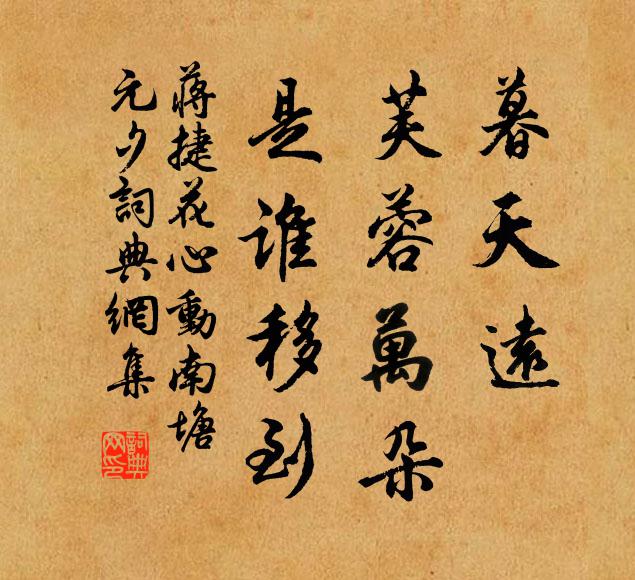 暮天遠
芙蓉萬朵
是誰移到
蔣捷花心動南塘
元夕詞典網集
詞典
网印